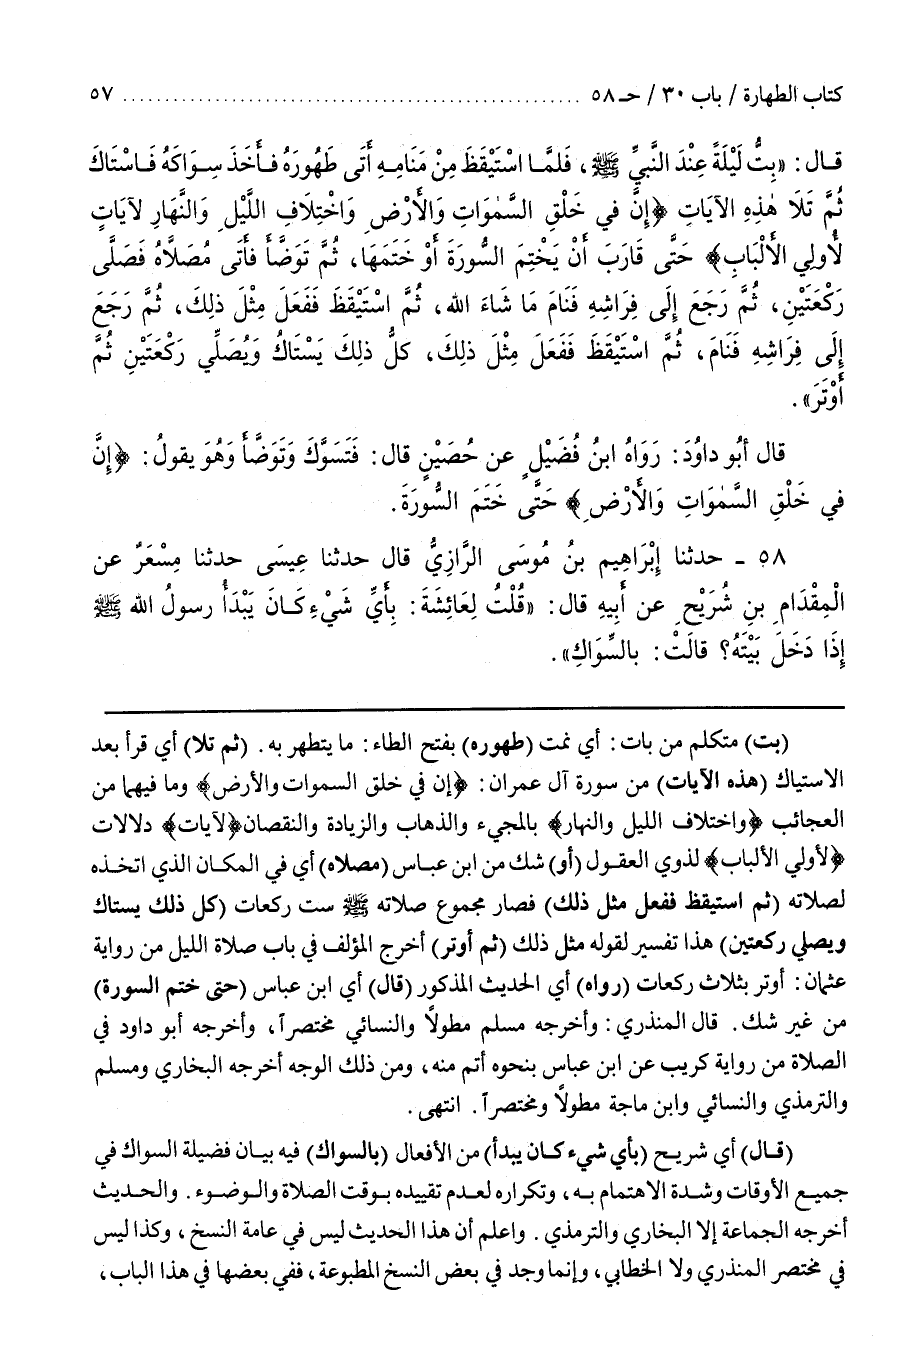 كتاب الطهارة / باب ٣٠ / حـ ٥٨ ............................................ ٥٧
قال: «بِتُّ لَيْلَةً عِنْدَ النَّبِيِّ ﷺ، فَلَمَّا اسْتَيْقَظَ مِنْ مَنَامِهِ أَتَى طَهُورَهُ فَأَخَذَ سِوَاكَهُ فَاسْتَاكَ
ثُمَّ تَلَا هٰذِهِ الآيَاتِ ﴿إِنَّ في خَلْقِ السَّمٰوَاتِ وَالأَرْضِ وَاخْتِلَافِ اللَّيْلِ وَالنَّهَارِ لآيَاتٍ
لأُولِي الأَلْبَابِ﴾ حَتَّى قَارَبَ أَنْ يَخْتِمَ السُّورَةَ أَوْ خَتَمَهَا، ثُمَّ تَوَضَّأَ فأَتَى مُصَلاَّهُ فَصَلَّى
رَكْعَتَيْنِ، ثُمَّ رَجَعَ إِلَى فِرَاشِهِ فَنَامَ مَا شَاءَ الله، ثُمَّ اسْتَيْقَظَ فَفَعَلَ مِثْلَ ذلِكَ، ثُمَّ رَجَعَ
إِلَى فِرَاشِهِ فَنَامَ، ثُمَّ اسْتَيْقَظَ فَفَعَلَ مِثْلَ ذلِكَ، كلُّ ذلِكَ يَسْتَاكُ وَيُصَلِّي رَكْعَتَيْنِ ثُمَّ
أَوْتَرَ».
قال أَبُو دَاوُدَ: رَوَاهُ ابنُ فُضَيْلٍ عن حُصَيْنٍ قال: فَتَسَوَّكَ وَتَوَضَّأَ وَهُوَ يقولُ: ﴿إِنَّ
في خَلْقِ السَّمٰوَاتِ وَالأَرْضِ﴾ حَتَّى خَتَمَ السُّورَةَ.
٥٨ - حدثنا إِبْرَاهِيم بنُ مُوسَى الرَّازِيُّ قال حدثنا عِيسَى حدثنا مِسْعَرٌ عن
الْمِقْدَامِ بنِ شُرَيْحٍ عن أَبِيهِ قال: «قُلْتُ لِعَائِشَةَ: بِأَيِّ شَيْءٍ كَانَ يَبْدَأُ رسولُ الله ﷺ
إِذَا دَخَلَ بَيْتَهُ؟ قالَتْ: بالسِّوَاكِ».
(بت) متكلم من بات: أي نمت (طهوره) بفتح الطاء: ما يتطهر به. (ثم تلا) أي قرأ بعد
الاستياك (هذه الآيات) من سورة آل عمران: ﴿إن في خلق السموات والأرض﴾ وما فيهما من
العجائب ﴿واختلاف الليل والنهار﴾ بالمجيء والذهاب والزيادة والنقصان ﴿لآيات﴾ دلالات
﴿لأولي الألباب﴾ لذوي العقول (أو) شك من ابن عباس (مصلاه) أي في المكان الذي اتخذه
لصلاته (ثم استيقظ ففعل مثل ذلك) فصار مجموع صلاته ﷺ ست ركعات (كل ذلك يستاك
ويصلي ركعتين) هذا تفسير لقوله مثل ذلك (ثم أوتر) أخرج المؤلف في باب صلاة الليل من رواية
عثمان: أوتر بثلاث ركعات (رواه) أي الحديث المذكور (قال) أي ابن عباس (حتى ختم السورة)
من غير شك. قال المنذري: وأخرجه مسلم مطولاً والنسائي مختصراً، وأخرجه أبو داود في
الصلاة من رواية كريب عن ابن عباس بنحوه أتم منه، ومن ذلك الوجه أخرجه البخاري ومسلم
والترمذي والنسائي وابن ماجة مطولاً ومختصراً. انتهى.
(قال) أي شريح (بأي شيء كان يبدأ) من الأفعال (بالسواك) فيه بيان فضيلة السواك في
جميع الأوقات وشدة الاهتمام به، وتكراره لعدم تقييده بوقت الصلاة والوضوء. والحديث
أخرجه الجماعة إلا البخاري والترمذي. واعلم أن هذا الحديث ليس في عامة النسخ، وكذا ليس
في مختصر المنذري ولا الخطابي، وإنما وجد في بعض النسخ المطبوعة، ففي بعضها في هذا الباب،